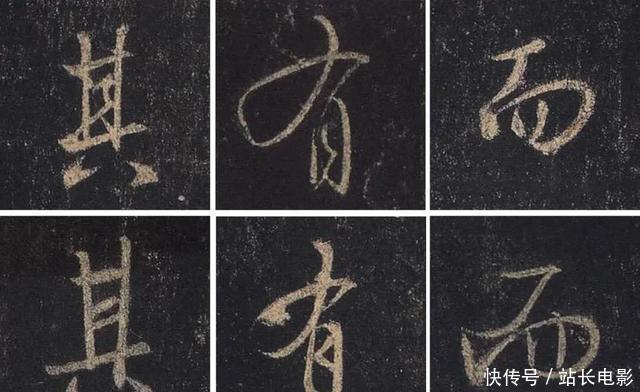 其有而
其有而
快传号/站长电影